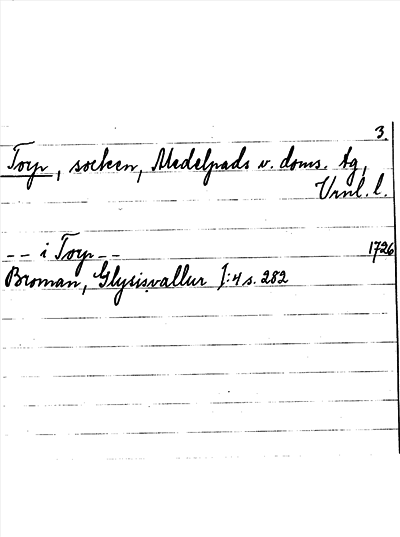 3.
Torp, socken, Medelpads v. doms. tg,
Vrnl. l.
-- i Torp -- 1726
Broman, Glysisvallur I:4 s. 282